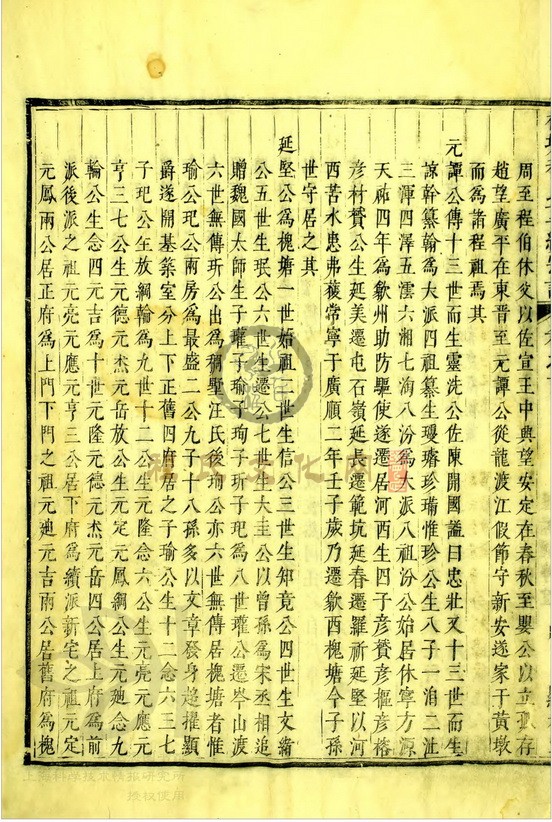 周至程伯休父以佐宣王中興望安定在春秋至嬰公以立孤存
趙望廣平在東晋至元譚公從龍渡江假節守新安遂家于黄墩
而爲諸程祖焉其
元譚公傳十三世而生靈洗公佐陳開國謚曰忠壯又十三世而生
諒幹纂翰爲大派四祖纂生璦璿珍瑞惟珍公生八子一洎二沚
三渾四澤五澐六湘七淘八汾爲大派八祖汾公始居休寧方源
天祐四年爲歙州助防驅使遂遷居河西生四子彦贇彦樞彦榕
彦村贇公生延美遷屯石嶺延長遷範坑延春遷羅祈延堅以河
西苦水患弗稜常寧于廣順二年壬子歲乃遷歙西槐塘今子孫
世守居之其
延堅公爲槐塘一世始祖二世生信公三世生知竟公四世生文緒
公五世生珉公六世生遷公七世生大圭公以曾孫爲宋丞相追
贈魏國太師生子瓘子瑜子珣子玘爲八世瓘公遷岑山渡
六世無傳玠公出爲稠墅汪氏後珣公亦六世無傳居槐塘者惟
瑜公玘公爾兩房爲最盛二公九子十八孫多以文章發身趨擢顯
爵遂開基築室分上下正舊四府居之子瑜公生十二念六三七
子玘公生放綱輪爲九世十二公生元隆念六公生元亮元應元
亨三七公生元德元杰元岳放公生元定元鳳綱公生元廸念九
輪公生念四元吉爲十世元隆元德元杰元岳四公居上府爲前
派後派之祖元亮元應元亨三公居下府爲續派新宅之祖元定
元鳳兩公居正府爲上門下門之祖元廸元吉兩公居舊府爲槐
上海科学技术情报研究所
授权使用